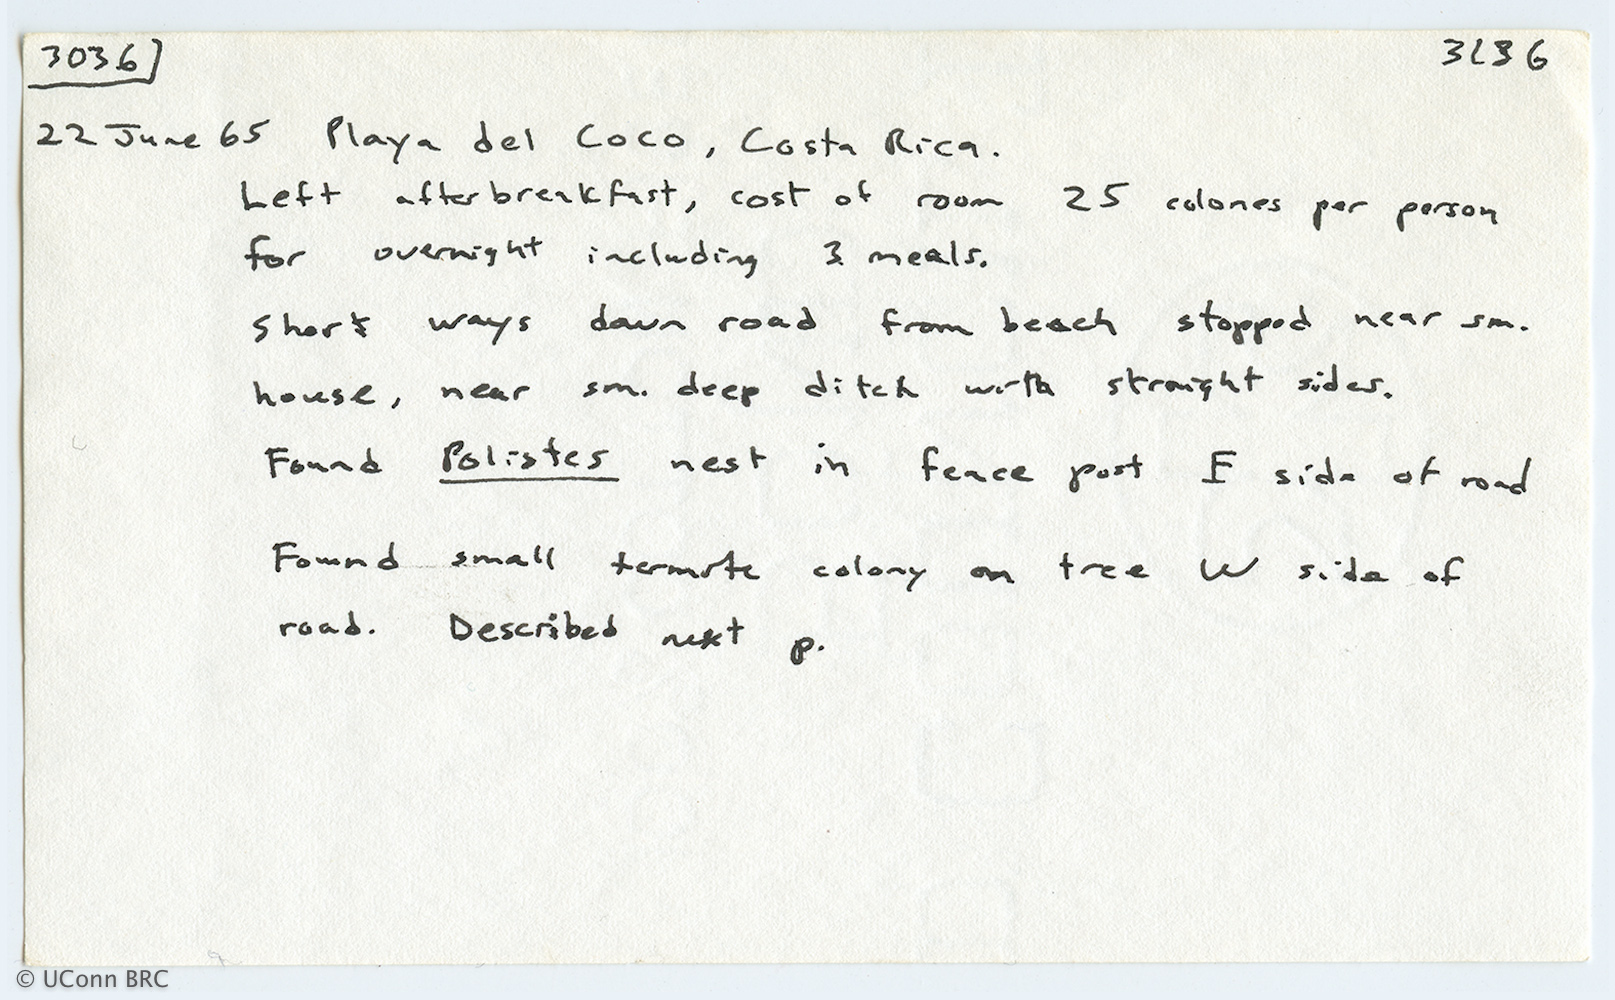 3036] 3136
22 June 65 Playa del Coco, Costa Rica.
Left after breakfast, cost of room 25 colones per person
for overnight including 3 meals.
Short ways down road from beach stopped near sm.
house, near sm. deep ditch with straight sides.
Found Polistes nest in fence post E side of road
Found small termite colony on tree W side of
road. Described next p.
© UConn BRC